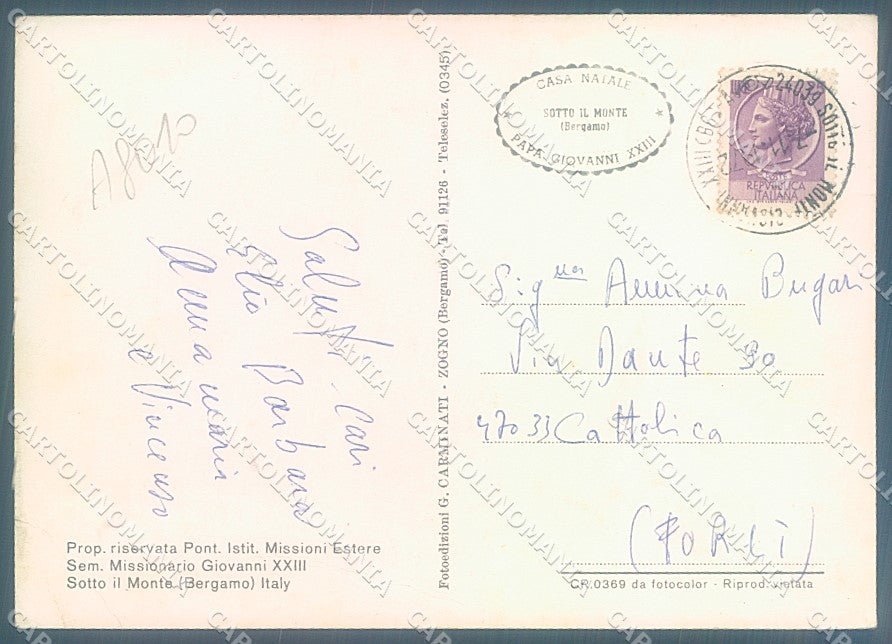 CASA NATALE
SOTTO IL MONTE
(Bergamo)
PAPA GIOVANNI XXIII
24039 SOTTO IL MONTE
REPVBBLICA
ITALIANA
Saluti Cari
Elio Barbara
Annamaria
e Vincenzo
Fotoedizioni G. CARMINATI - ZOGNO (Bergamo) - Tel. 91126 - Teleselez. (0345)
Sig.na Annina Bugari
Via Dante 90
47033 Cattolica
(FORLÌ)
Prop. riservata Pont. Istit. Missioni Estere
Sem. Missionario Giovanni XXIII
Sotto il Monte (Bergamo) Italy
CR.0369 da fotocolor - Riprod. vietata
CARTOLINOMANIA